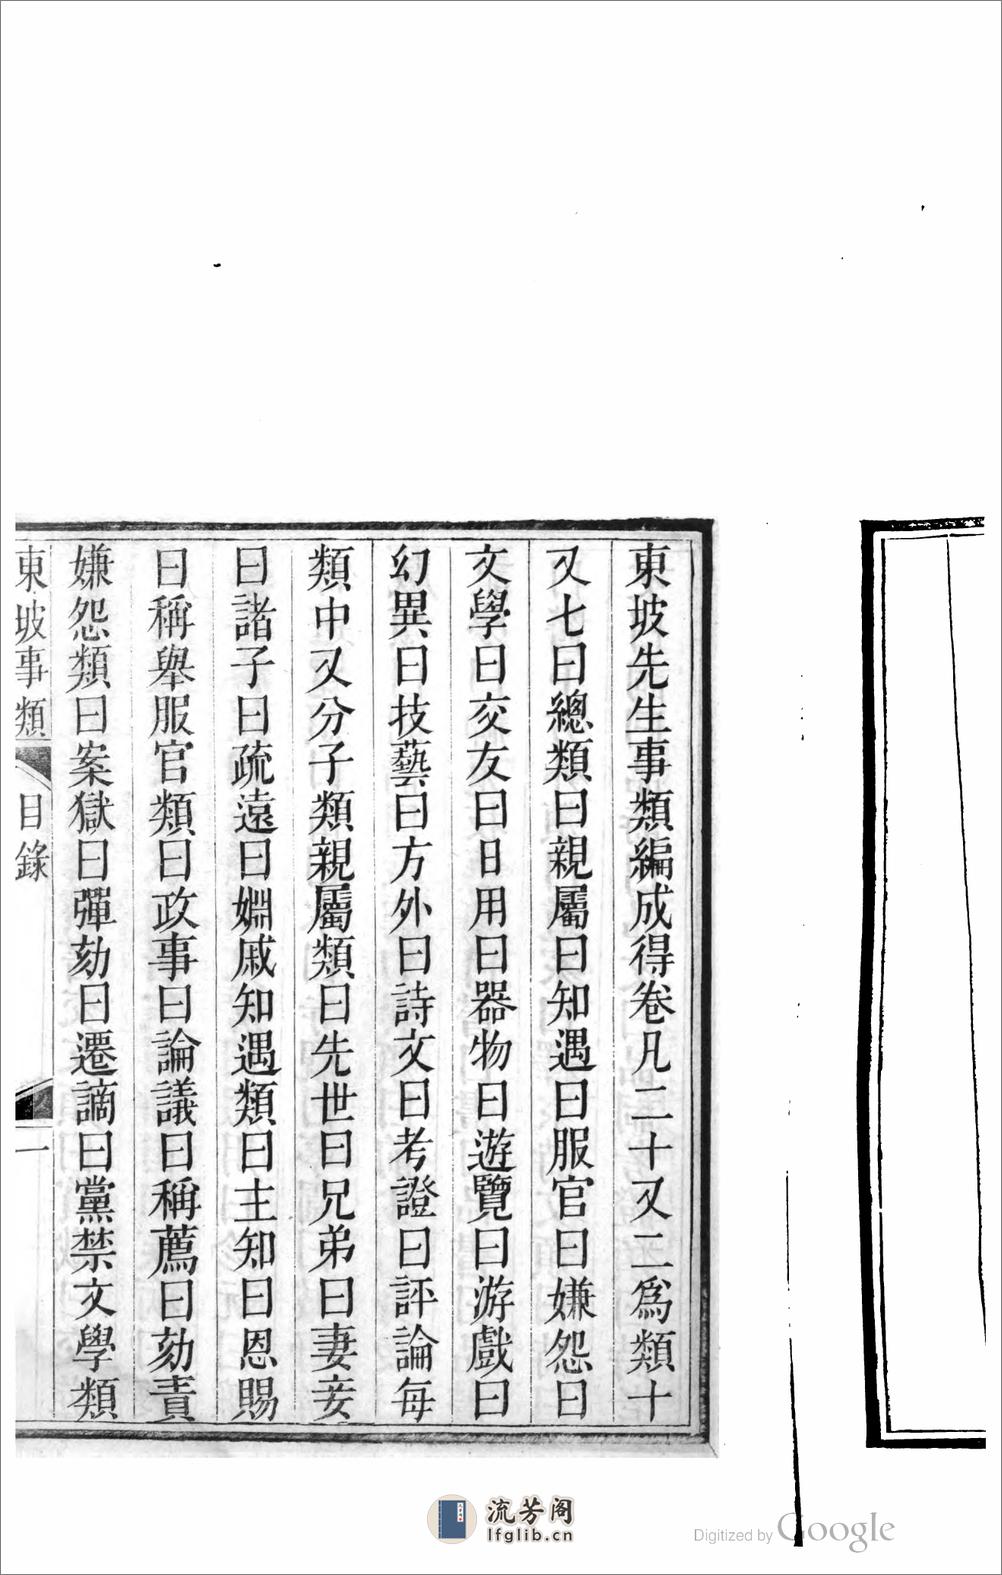 東坡先生事類編成得卷凡二十又二爲類十
又七曰總類曰親屬曰知遇曰服官曰嫌怨曰
文學曰交友曰日用曰器物曰遊覽曰游戲曰
幻異曰技藝曰方外曰詩文曰考證曰評論每
類中又分子類親屬類曰先世曰兄弟曰妻妾
曰諸子曰疏遠曰婣戚知遇類曰主知曰恩賜
曰稱舉服官類曰政事曰論議曰稱薦曰劾責
嫌怨類曰案獄曰彈劾曰遷謫曰黨禁文學類
東坡事類 目錄 一
流芳阁
lfglib.cn
Digitized by Google